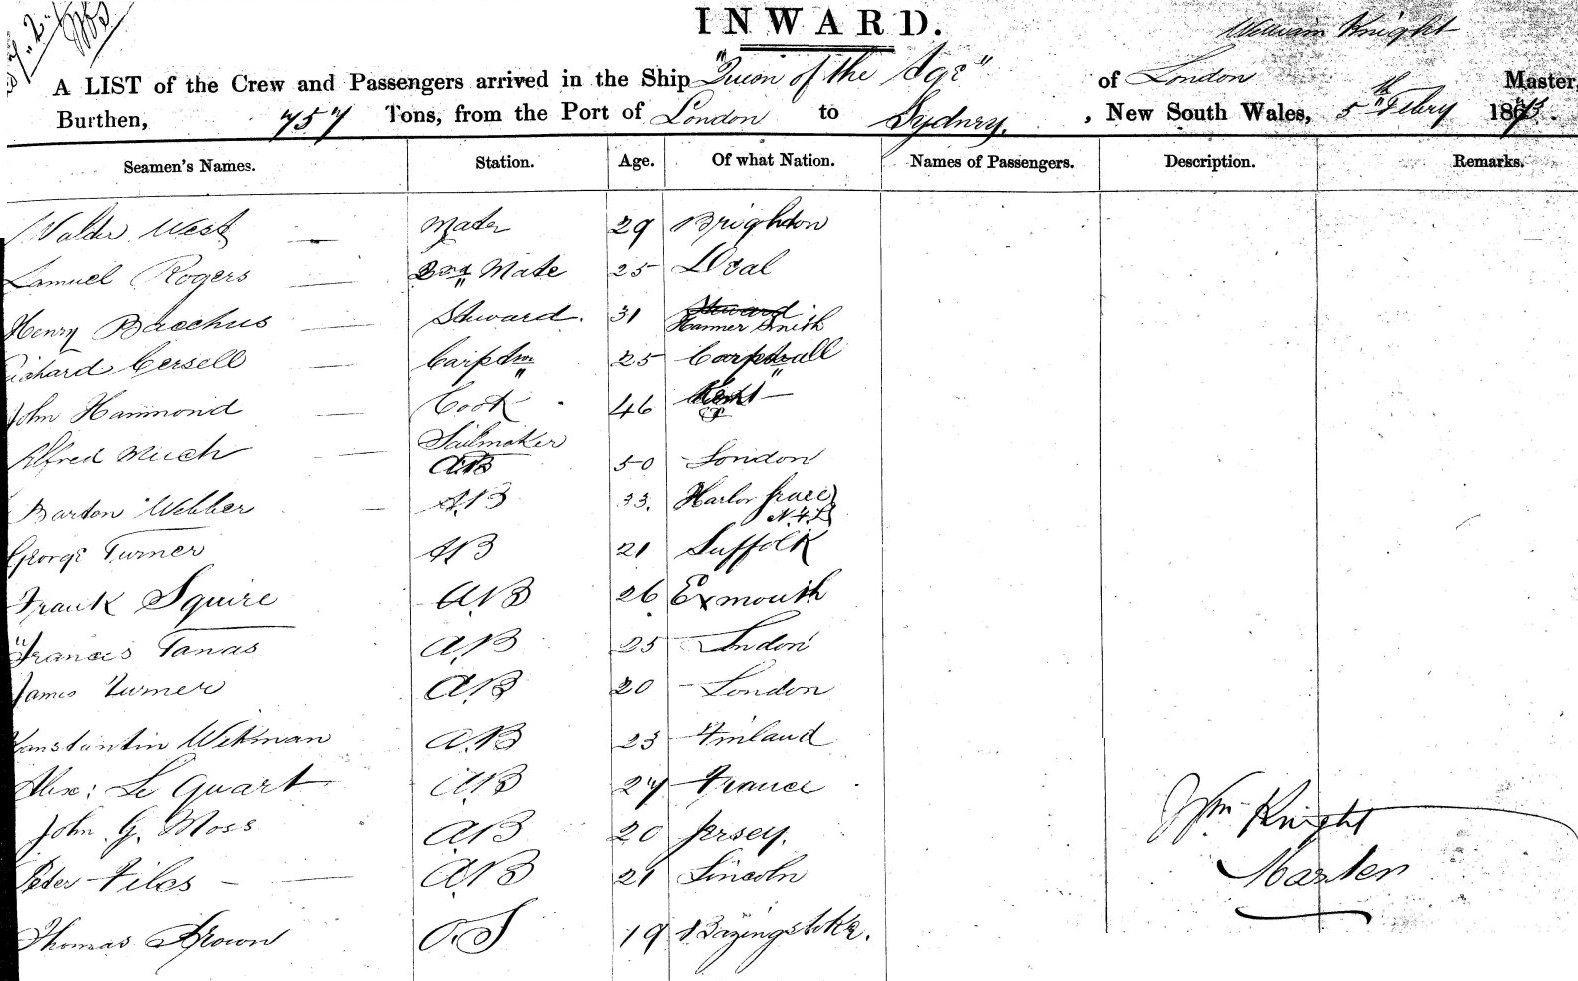 INWARD.
William Knight
A LIST of the Crew and Passengers arrived in the Ship "Queen of the Age" of London Master,
Burthen, 757 Tons, from the Port of London to Sydney, New South Wales, 5th Febry 1873.
Seamen's Names. Station. Age. Of what Nation. Names of Passengers. Description. Remarks.
Walder West Mate 29 Brighton
Samuel Rogers 2nd Mate 25 Deal
Henry Bacchus Steward. 31 Steward
Hammer Smith
Richard Cersell Carptnr 25
John Hammond Cook 46 Kent
Sailmaker
Alfred Much AB 50 London
Barton Webber A.B 33. Harbor Grace
N.F.L
George Turner AB 21 Suffolk
Frank Squire A.B 26 Exmouth
Francis Tanas A.B 25 London
James Turner A.B 20 London
Konstantin Wekman A.B 23 Finland
Alex: Le Quart A.B 27 France
John G. Moss A.B 20 Jersey.
Wm Knight
Peter Files A.B 21 Lincoln
Master
Thomas Brown O.S 19 Bazingstoke.